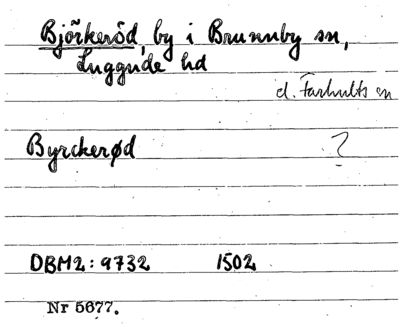 Björkeröd, by i Brunnby sn,
Luggude hd
el. Farhults sn
Byrckerød ?
DBM2: 9732 1502
Nr 5677.